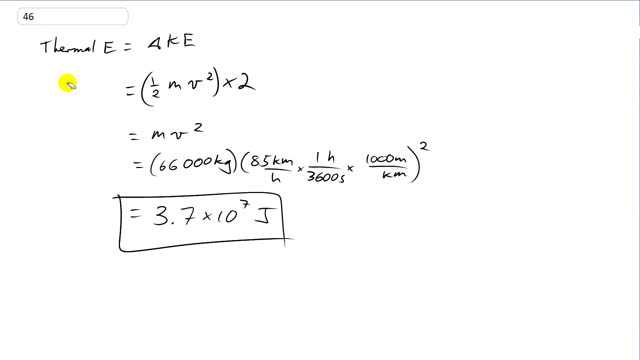 46
Thermal E = ΔKE
= (1/2 m v²) × 2
= m v²
= (66000kg)(85km/h × 1h/3600s × 1000m/km)²
= 3.7 × 10⁷ J